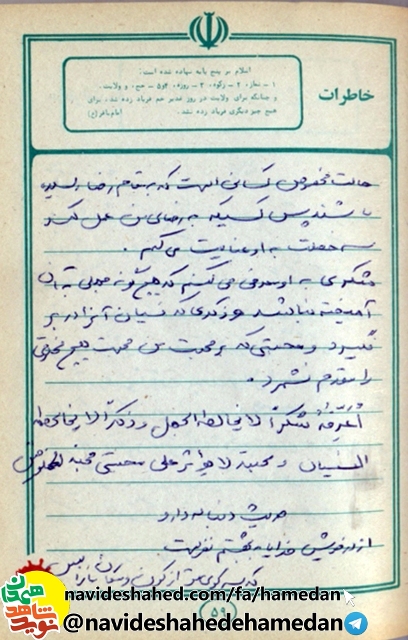 خاطرات
اسلام بر پنج پایه نهاده شده است:
۱ - نماز، ۲ - زکوة، ۳ - روزه، ۴ - حج، ۵ - ولایت.
و چنانکه برای ولایت در روز غدیر خم فریاد زده شد، برای
هیچ چیز دیگری فریاد زده نشد. امام باقر (ع)
حالت مخصوص کسانی است که به مقام رضا رسیده
باشند پس کسیکه به رضای من عمل کند
سه خصلت به او عنایت می‌کنم.
شکری به او معرفی می‌کنم که هیچ گونه جهلی به آن
آمیخته نباشد و ذکری که نسیان آنرا در بر
نگیرد و محبتی که بر محبت من محبت هیچ مخلوقی
را مقدم نشمرد.
أعرفه شکراً لا یخالطه الجهل و ذکراً لا یخالطه
النسیان و محبة لا یؤثر علی محبتی محبة المخلوقین
حدیث دنباله دارد
از در خویش خدایا به بهشتم نفرست
که سر کوی تو از کون و مکان ما را بس
navideshahed.com/fa/hamedan
۵۹
@navideshahedehamedan
نوید شاهد
همدان